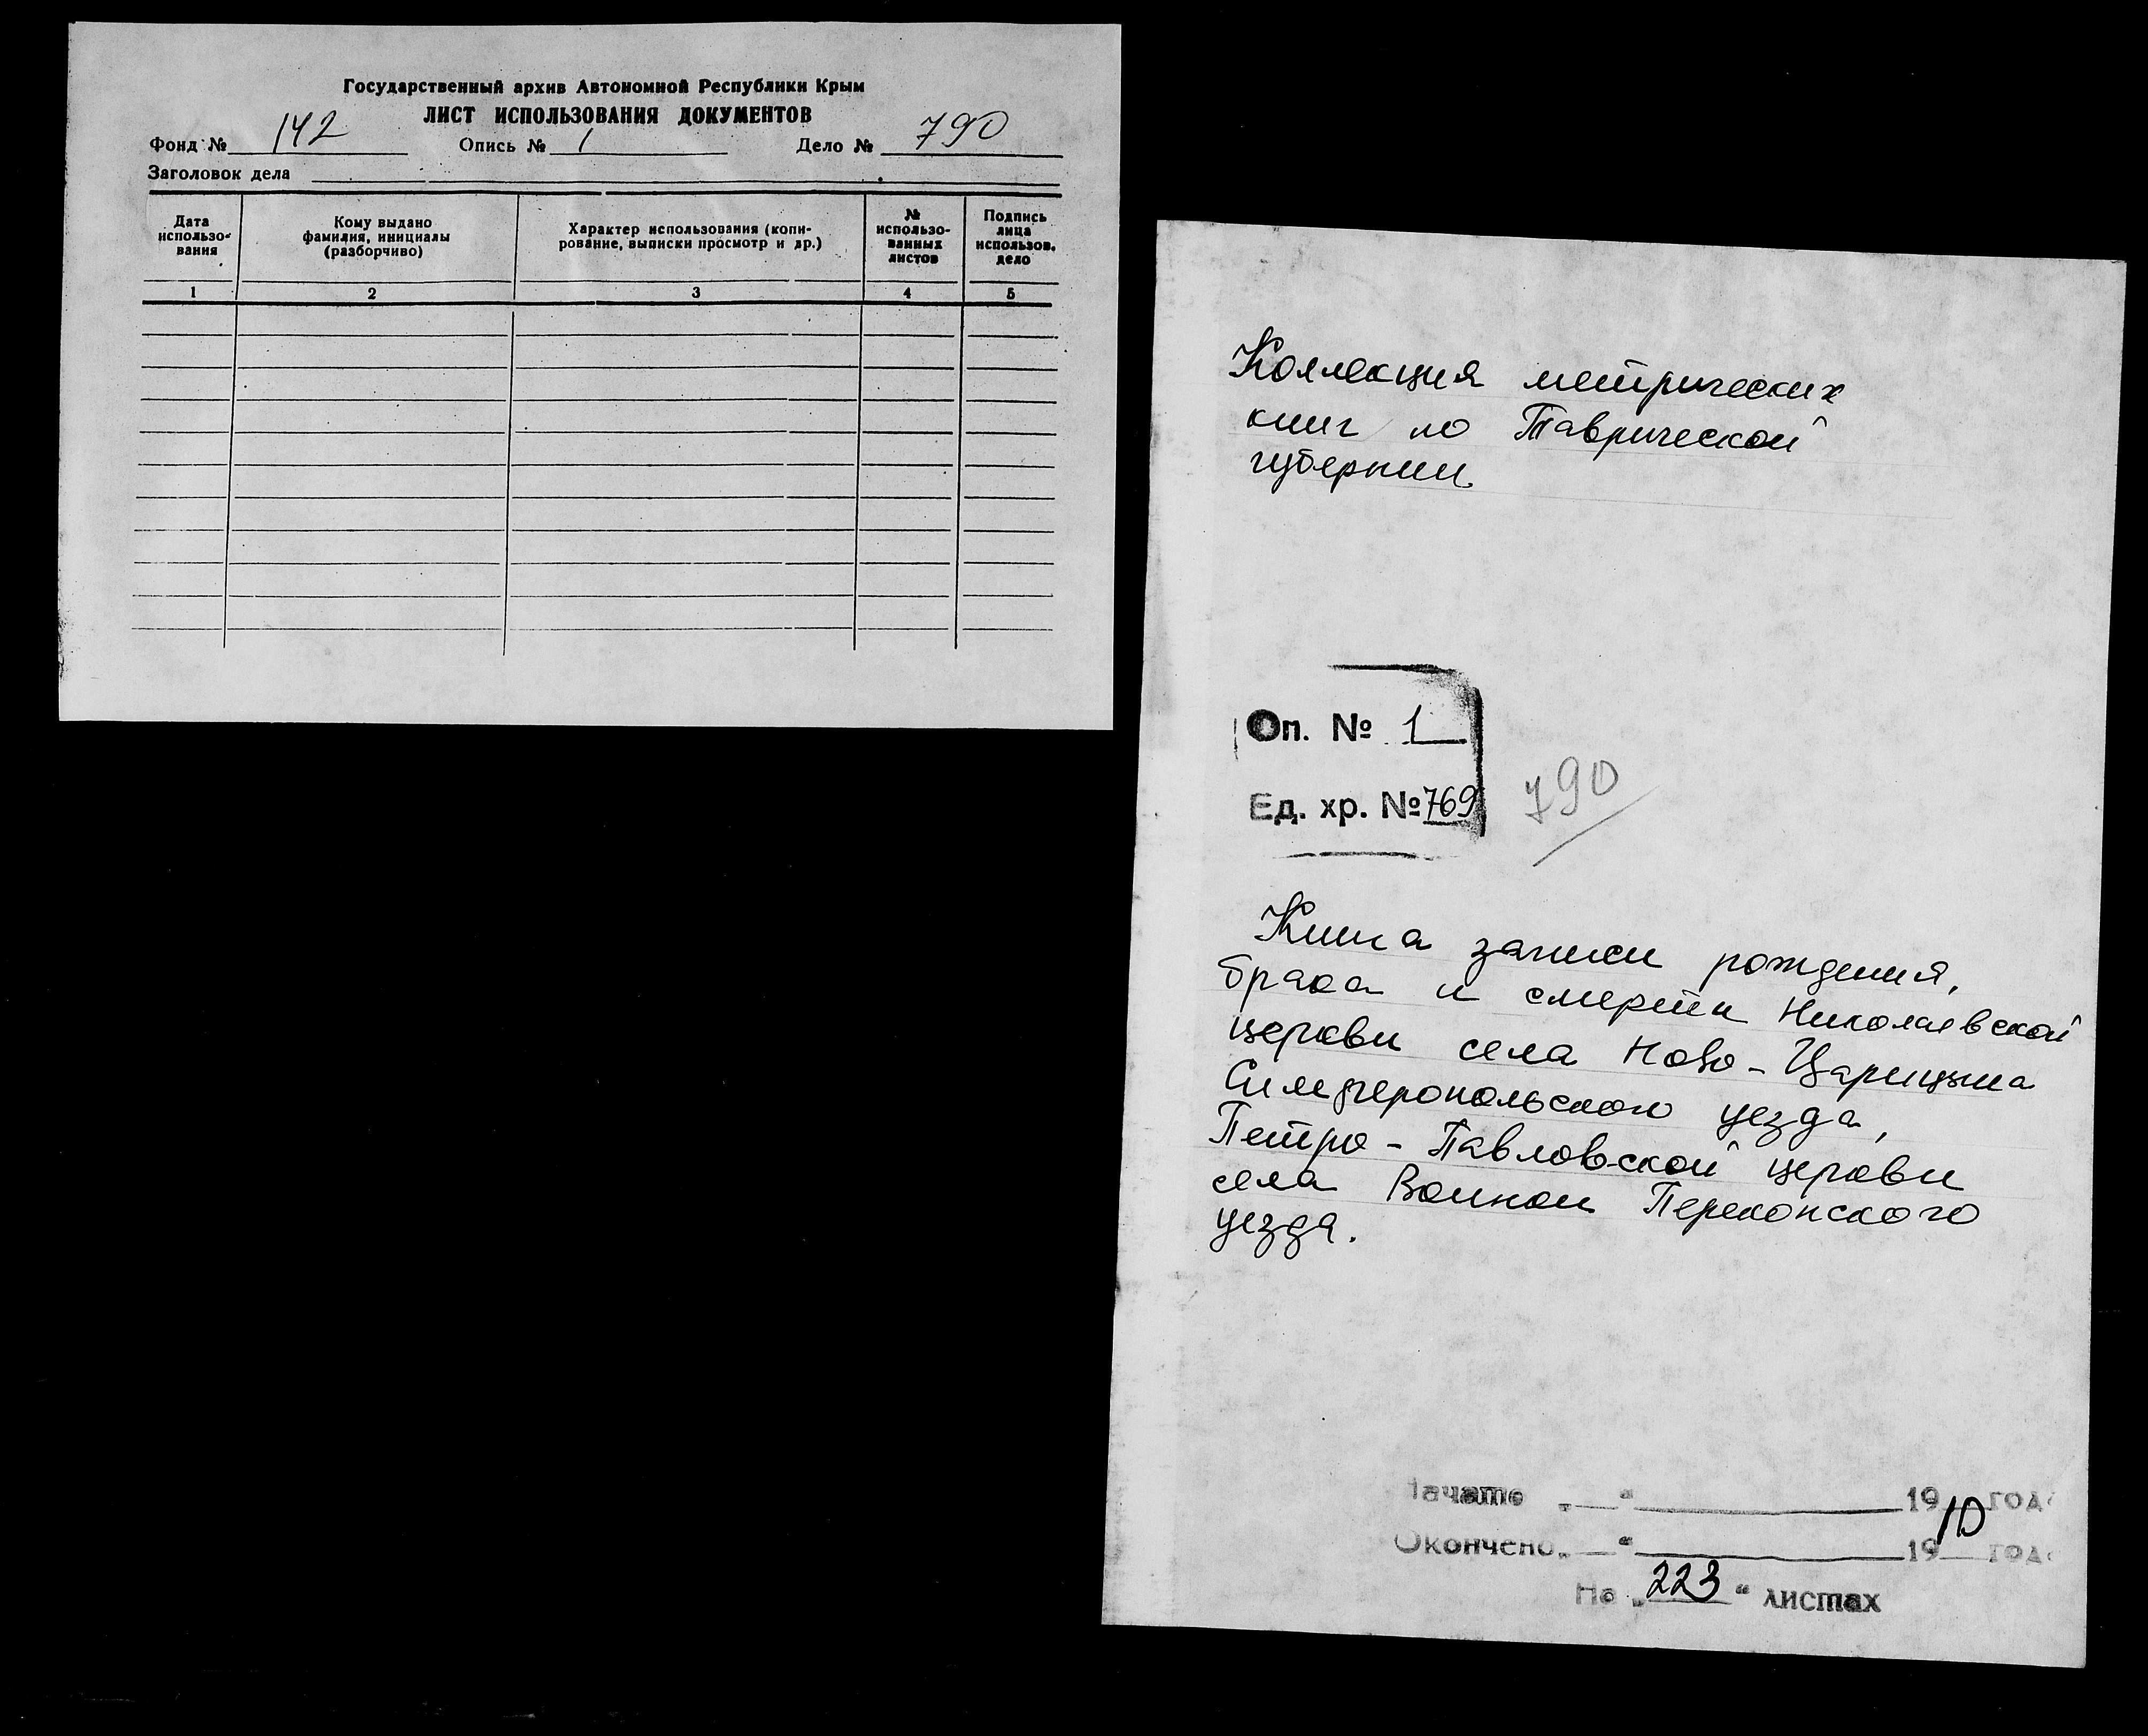 Государственный архив Автономной Республики Крым
ЛИСТ ИСПОЛЬЗОВАНИЯ ДОКУМЕНТОВ
Фонд № 142 Опись № 1 Дело № 790
Заголовок дела
Дата использо-вания
Кому выдано фамилия, инициалы (разборчиво)
Характер использования (копи-рование, выписки просмотр и др.)
№ использо-ванных листов
Подпись лица использов. дело
1 2 3 4 5
Коллекция метрических
книг по Таврической
губернии
Оп. № 1
Ед. хр. № 769 790
Книга записи рождения,
брака и смерти Николаевской
церкви села Ново-Царицына
Симферопольского уезда,
Петро-Павловской церкви
села Воинки Перекопского
уезда.
Начато „ “ 19 год
10
Окончено „ “ 19 год
На „223“ листах